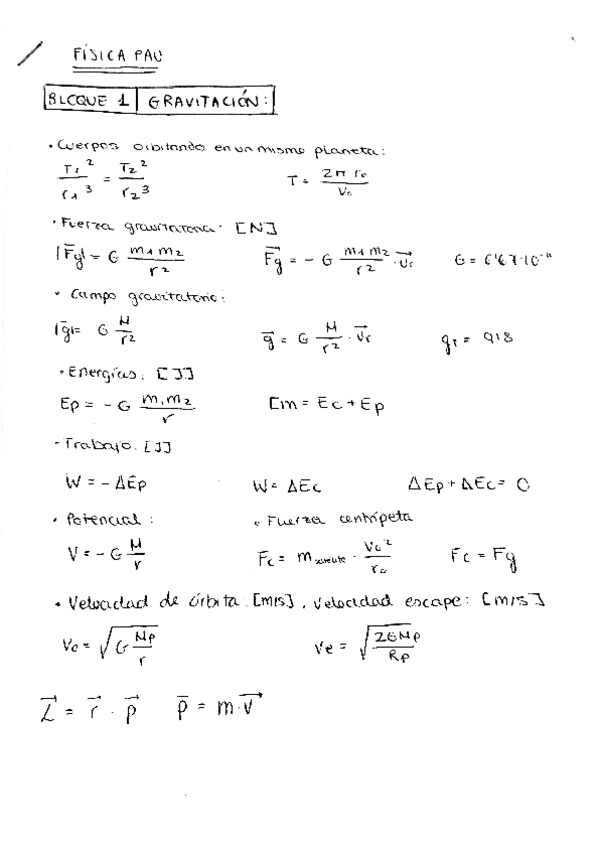 FÍSICA PAU
BLOQUE 1 | GRAVITACIÓN:
• Cuerpos orbitando en un mismo planeta:
T₁²/r₁³ = T₂²/r₂³    T = 2π r₀/V₀
• Fuerza gravitatoria: [N]
|F̄g| = G m₁m₂/r²    F⃗g = - G m₁m₂/r² · u⃗r    G = 6'67·10⁻¹¹
• Campo gravitatorio:
|ḡ| = G M/r²    g⃗ = G M/r² · u⃗r    gT = 9'8
• Energías: [J]
Ep = - G m₁m₂/r    Em = Ec + Ep
- Trabajo: [J]
W = - ΔEp    W = ΔEc    ΔEp + ΔEc = 0
• Potencial:    • Fuerza centrípeta
V = - G M/r    Fc = m satélite · V₀²/r₀    Fc = Fg
• Velocidad de órbita: [m/s], velocidad escape: [m/s]
V₀ = √(G Mp/r)    Ve = √(2GMp/Rp)
L⃗ = r⃗ · p⃗    p̄ = m·v⃗